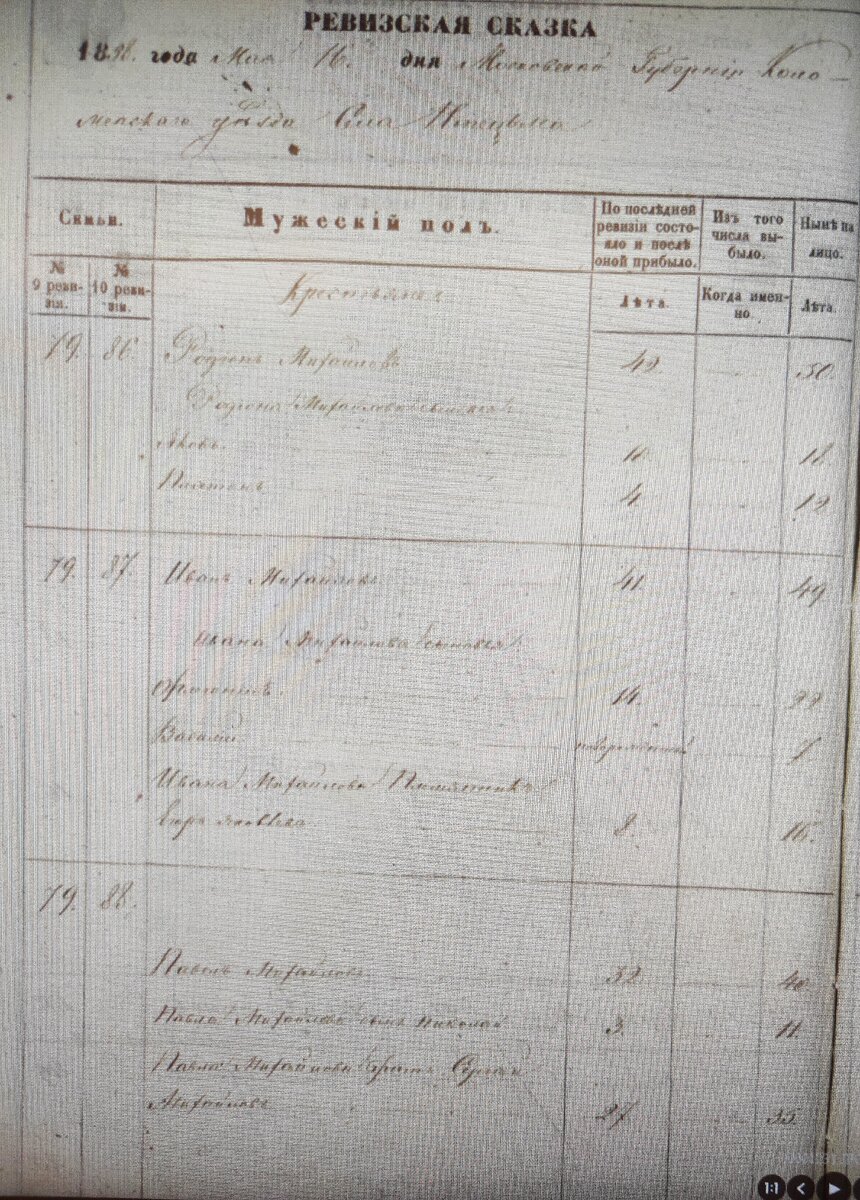 РЕВИЗСКАЯ СКАЗКА
1858. года Мая 16. дня Московской Губернiи Коло
менскаго уѣзда Села
Семьи. Мужескiй полъ. По послѣдней ревизiи состояло и послѣ оной прибыло. Изъ того числа выбыло. Нынѣ на лицо.
№ 9 ревизiи. № 10 ревизiи. Крестьяне Лѣта. Когда именно Лѣта.
79. 86. Родiонъ Михайловъ 42. 50.
Родiона Михайлова сыновья
Яковъ. 10. 18.
Платонъ 4. 12
79. 87. Иванъ Михайловъ 41. 49
Ивана Михайлова сыновья
14. 22
Василiй новорожденный 7
Ивана Михайлова Племянникъ
Яковлевъ 8. 16.
79. 88.
Павелъ Михайловъ 32 40.
Павла Михайлова сынъ Николай 3. 11.
Павла Михайлова братъ Сергѣй
Михайловъ 27 35.
1:1